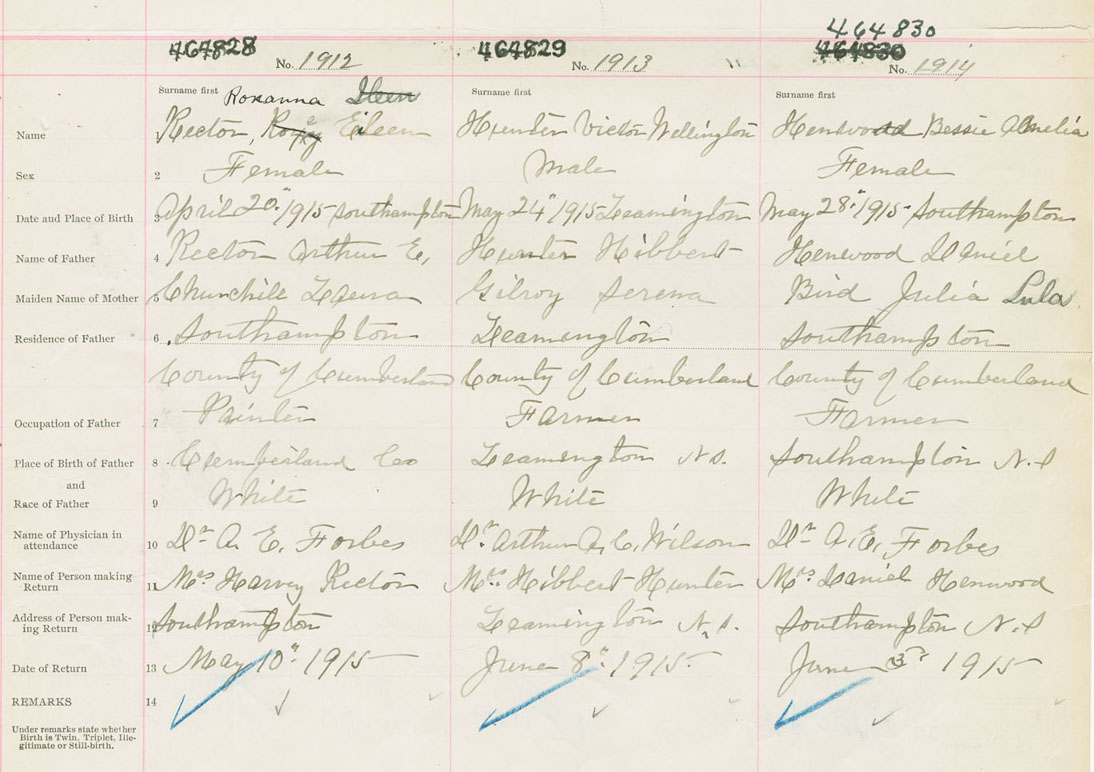 464830
464828 464829 464830
No. 1912 No. 1913 " No. 1914
Surname first Roxanna Ileen Surname first Surname first
Name 1 Rector, Roxy Eileen Hunter Victor Wellington Henwood Bessie Amelia
Sex 2 Female Male Female
Date and Place of Birth 3 April 20" 1915 Southampton May 24" 1915 Leamington May 28" 1915 Southampton
Name of Father 4 Rector Arthur E, Hunter Hibbert Henwood Daniel
Maiden Name of Mother 5 Churchill Laura Gilroy Serena Bird Julia Lula
Residence of Father 6 Southampton Leamington Southampton
County of Cumberland County of Cumberland County of Cumberland
Occupation of Father 7 Painter Farmer Farmer
Place of Birth of Father 8 Cumberland Co Leamington N.S. Southampton N.S
and
Race of Father 9 White White White
Name of Physician in
attendance 10 Dr A. E. Forbes Dr. Arthur A. C. Wilson Dr A. E. Forbes
Name of Person making
Return 11 Mrs Harvey Rector Mrs. Hibbert Hunter Mrs Daniel Henwood
Address of Person mak-
ing Return 12 Southampton Leamington N.S. Southampton N.S
Date of Return 13 May 10" 1915 June 8" 1915 June 3" 1915
REMARKS 14
Under remarks state whether
Birth is Twin, Triplet, Ille-
gitimate or Still-birth.